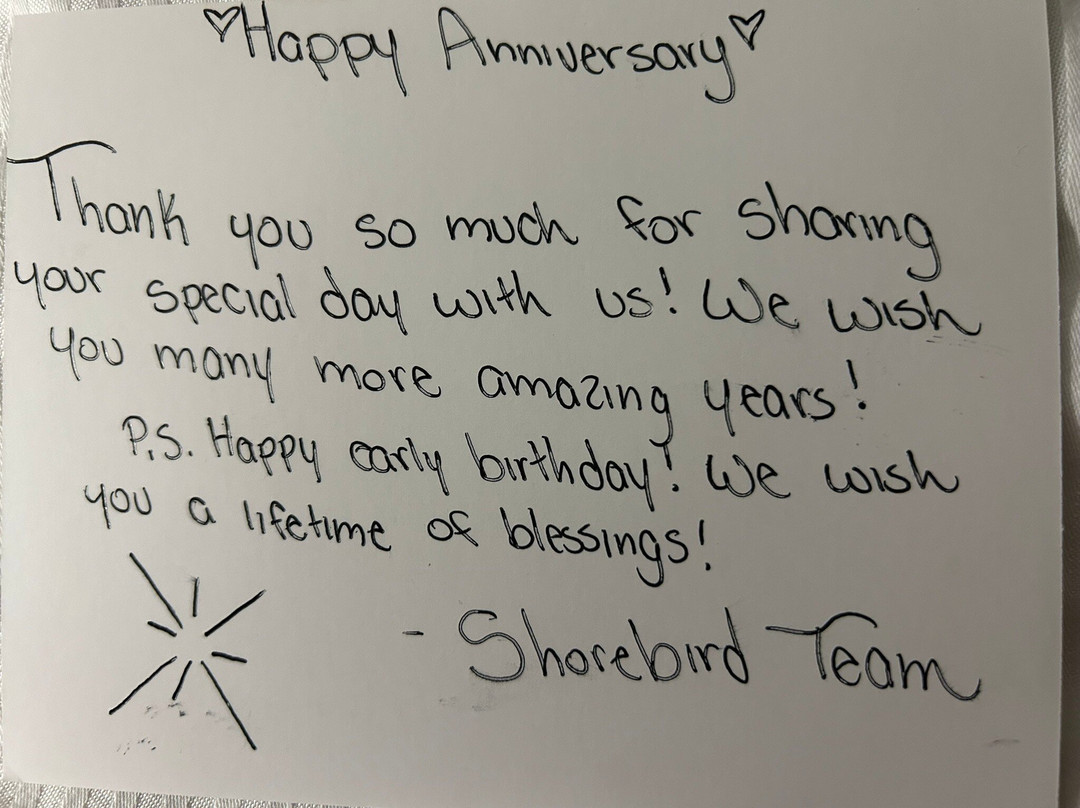 ♡Happy Anniversary♡
Thank you so much for sharing
your special day with us! We wish
you many more amazing years!
P.S. Happy early birthday! We wish
you a lifetime of blessings!
- Shorebird Team